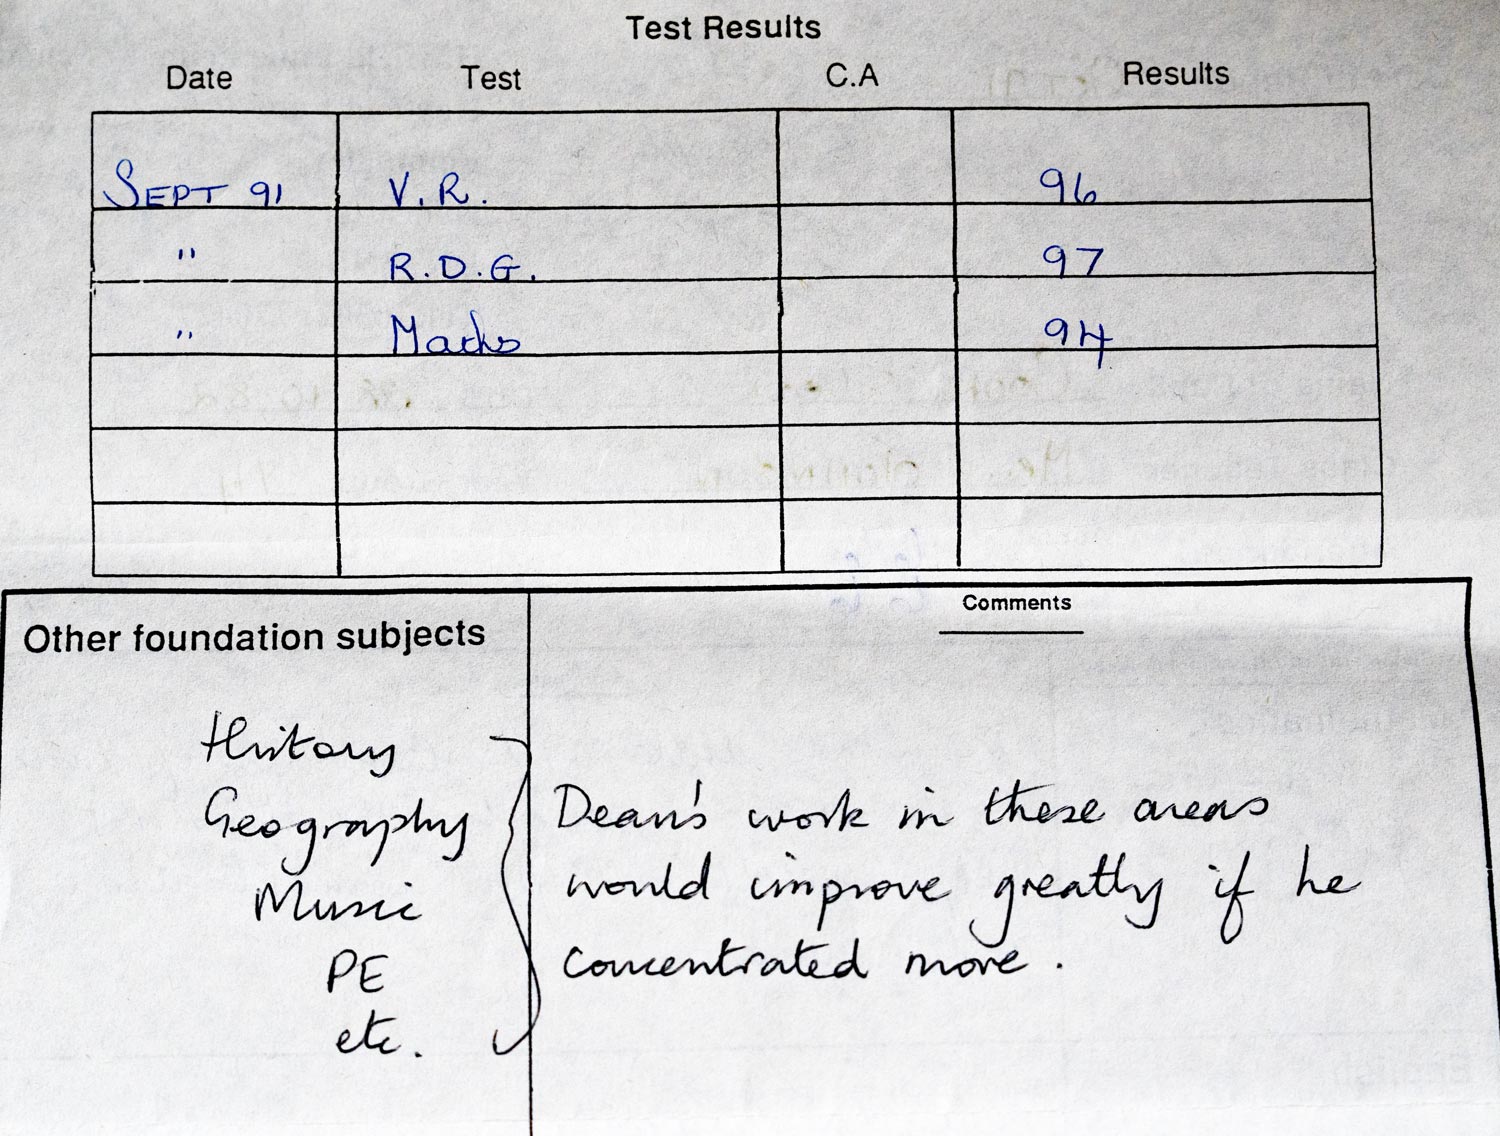 Test Results
Date Test C.A Results
SEPT 91 V.R. 96
" R.D.G. 97
" Maths 94
Comments
Other foundation subjects
History
Geography
Music
PE
etc.
Dean's work in these areas
would improve greatly if he
concentrated more.